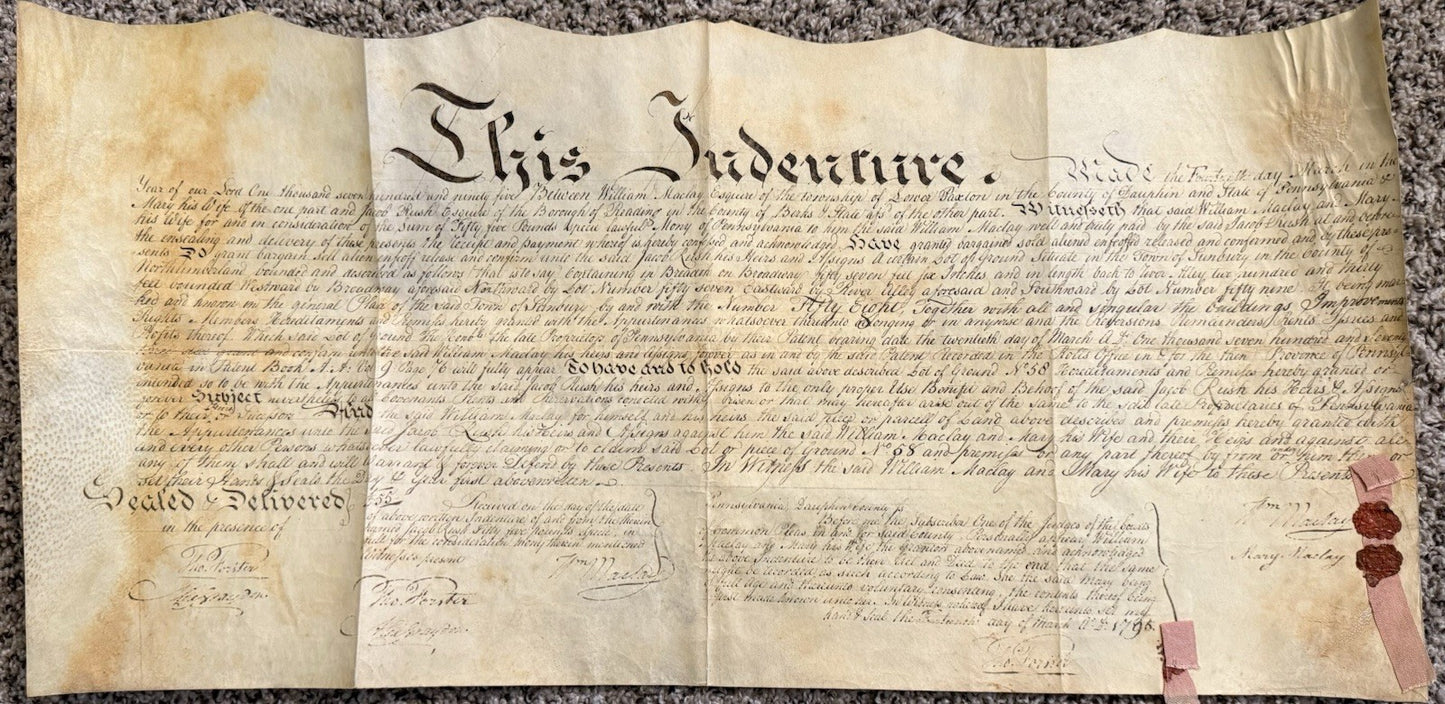 This Indenture. Made the day March in the
Year of our Lord One thousand seven hundred and ninety five Between William Maclay Esquire of the township of Lower Paxton in the County of Dauphin and State of Pennsylvania &
Mary his Wife of the one part and Jacob Rush Esquire of the Borough of Reading in the County of Berks & State afs.d of the other part. Witnesseth that said William Maclay and Mary
his Wife for and in consideration of the sum of Fifty five Pounds specie lawful Mony of Pennsylvania to him the said William Maclay well and truly paid by the said Jacob Rush at and before
the ensealing and delivery of these presents the receipt and payment whereof is hereby confessed and acknowledged Have granted bargained sold aliened enfeoffed released and confirmed and by these pre=
sents Do grant bargain sell alien enfeoff release and confirm unto the said Jacob Rush his Heirs and Assigns A certain Lot of Ground Situate in the Town of Sunbury in the County of
Northumberland bounded and described as follows that is to say Containing in Breadth on Broadway fifty seven feet six Inches and in length back to River Alley two hundred and thirty
feet bounded Westward by Broadway aforesaid Northward by Lot Number fifty seven Eastward by River Alley aforesaid and Southward by Lot Number fifty nine It being mar
ked and known in the general Plan of the said Town of Sunbury by and with the Number Fifty Eight, Together with all and singular the Buildings Improvements
Rights Members Hereditaments and Premises hereby granted with the Appurtenances whatsoever thereunto belonging or in anywise and the Reversions Remainders Rents Issues and
Profits thereof Which said Lot of Ground the Honble the late Proprietors of Pennsylvania by their Patent bearing date the twentieth day of March A.D. One thousand seven hundred and
and confirm unto the said William Maclay his heirs and assigns forever as in and by the said Patent Recorded in the Rolls Office in & for the then Province of Pennsyl
vania in Patent Book A.A. Vol 9 Page 76 will fully appear To have and to hold the said above described Lot of Ground No. 58 Hereditaments and Premises hereby granted or
intended so to be with the Appurtenances unto the said Jacob Rush his heirs and Assigns to the only proper Use Benefit and Behoof of the said Jacob Rush his Heirs & Assigns
forever Subject nevertheless to all Covenants Rents and Reservations connected with, arisen or that may hereafter arise out of the Same to the said late Proprietaries of Pennsylvania
or to their the said William Maclay for himself and his heirs the said piece or parcell of Land above described and premises hereby granted with
the Appurtenances unto the said Jacob Rush his Heirs and Assigns against him the said William Maclay and Mary his Wife and their Heirs and against all
and every other Persons whatsoever lawfully claiming or to claim said Lot or piece of Ground No. 58 and premises or any part thereof by from or under them or
any of them shall and will Warrant & forever Defend by these Presents In Witness the said William Maclay and Mary his Wife to these Presents
set their Hands & Seals the Day & Year first abovewritten
Sealed & Delivered
in the presence of
Tho. Forster
Alex Graydon
£55 Received on the day of the date
of above written Indenture of and from the therein
named Jacob Rush Fifty five Pounds specie in
full for the consideration mony therein mentioned
Witnesses present
Wm Maclay
Tho. Forster
Alex Graydon
Pennsylvania Dauphin County ss
Before me the Subscriber One of the Judges of the Court
of Common Pleas in and for said County Personally appear William
Maclay and Mary his Wife the grantors abovenamed and acknowledged
the above Indenture to be their Act and Deed to the end that the same
might be recorded as such according to Law. She the said Mary being
of full age and thereunto voluntary Consenting the contents thereof being
first made known unto her. In Witness whereof I have hereunto set my
hand & Seal the day of March A.D. 1795.
Tho. Forster
Wm Maclay
Mary Maclay